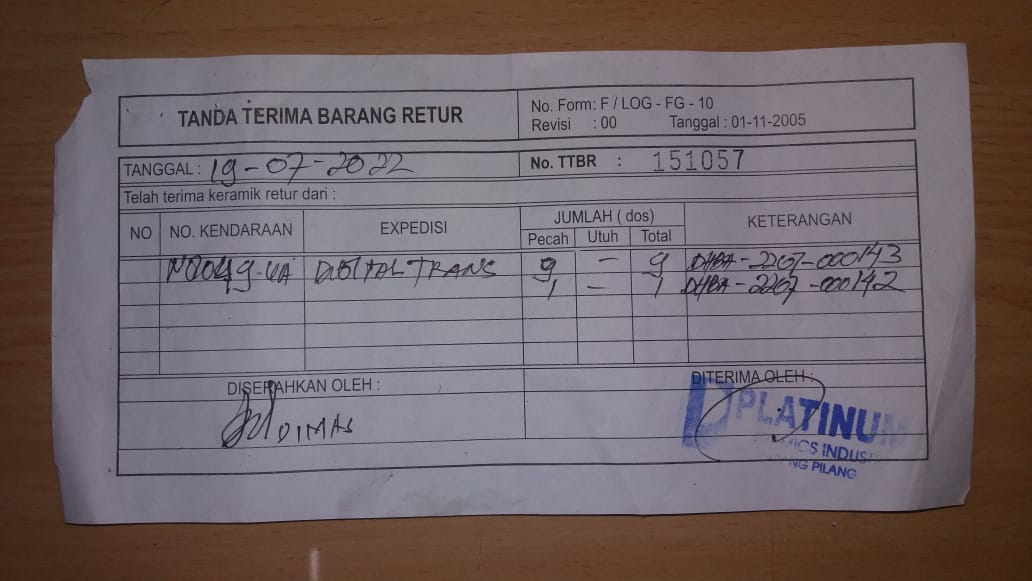 TANDA TERIMA BARANG RETUR
No. Form: F / LOG - FG - 10
Revisi : 00 Tanggal : 01-11-2005
TANGGAL : 19-07-2022
No. TTBR : 151057
Telah terima keramik retur dari :
NO NO. KENDARAAN EXPEDISI JUMLAH ( dos) KETERANGAN
Pecah Utuh Total
DIGITAL TRANS 9 - 9 DHBA-2207-000143
1 - 1 DHBA-2207-000142
DISERAHKAN OLEH : DITERIMA OLEH :
DIMAS
PLATINUM
INDUS
PILANG